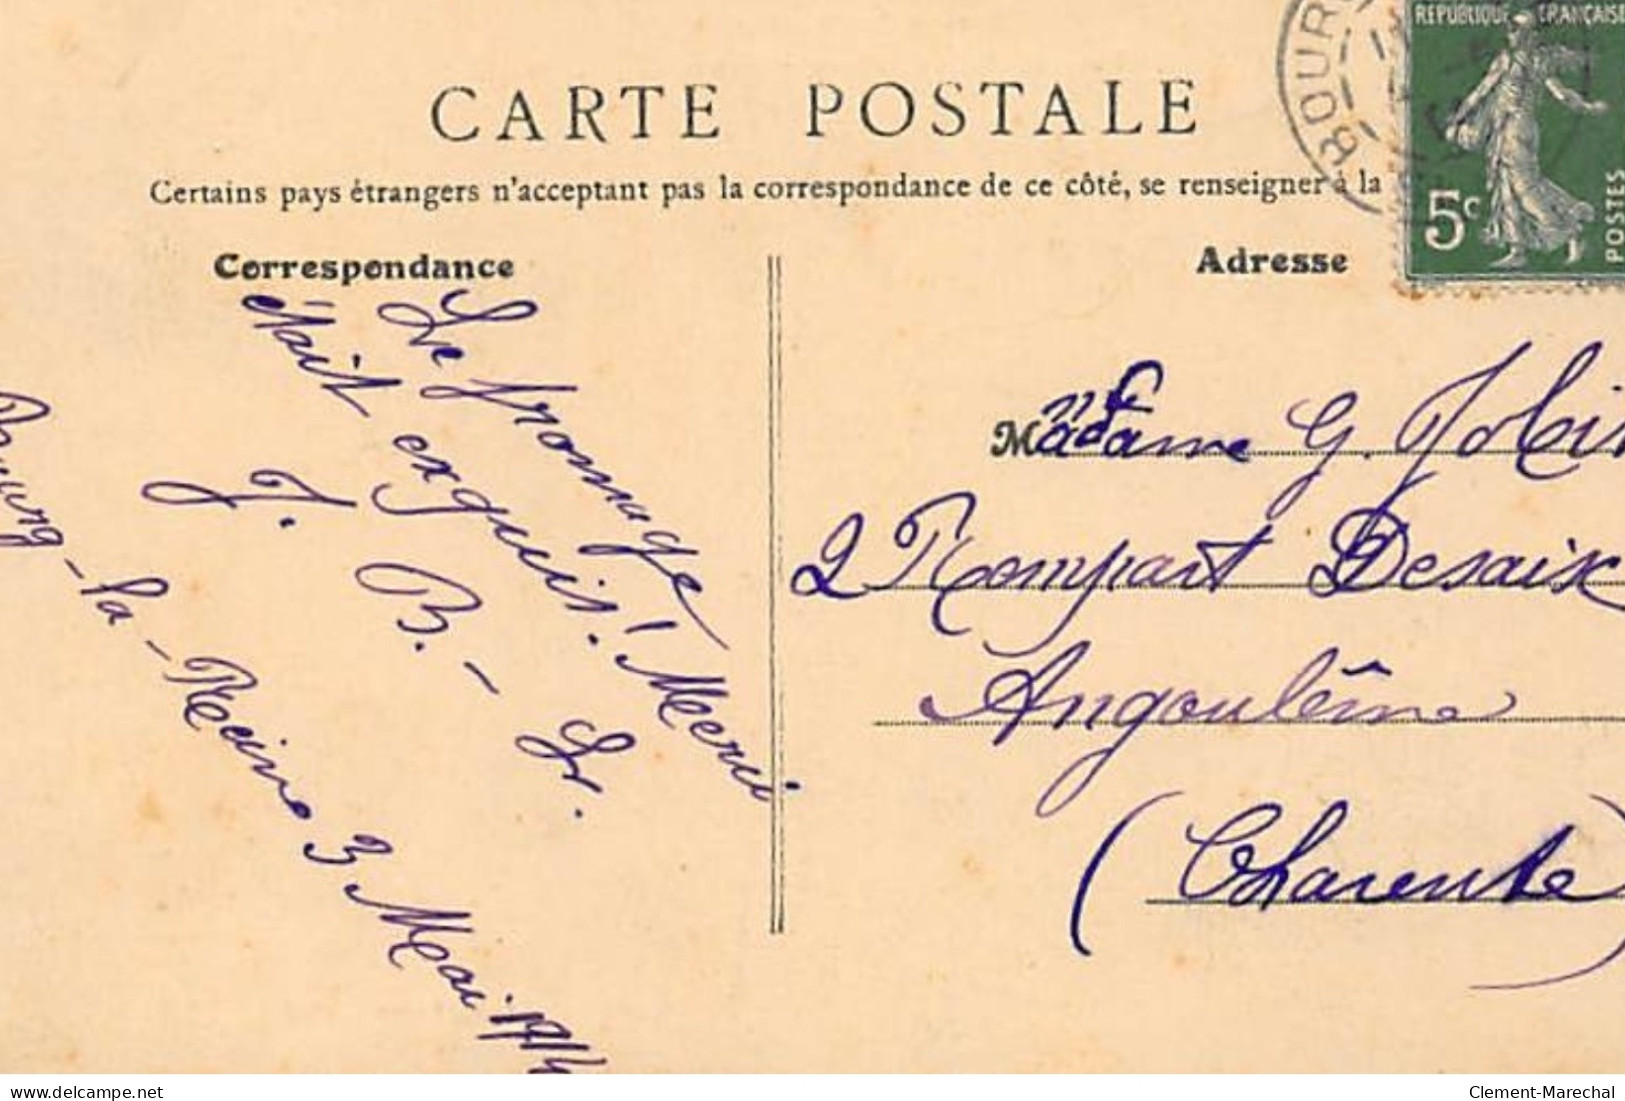 RÉPUBLIQUE FRANÇAISE
BOURG
5c
POSTES
CARTE POSTALE
Certains pays étrangers n'acceptant pas la correspondance de ce côté, se renseigner à la
Correspondance
Adresse
Le fromage
était exquis! Merci
J. B. - Gr.
Bourg-la-Reine 3 Mai 1914
Madame G. Jobit
2 Rempart Desaix
Angoulême
(Charente)
delcampe.net
Clement-Marechal